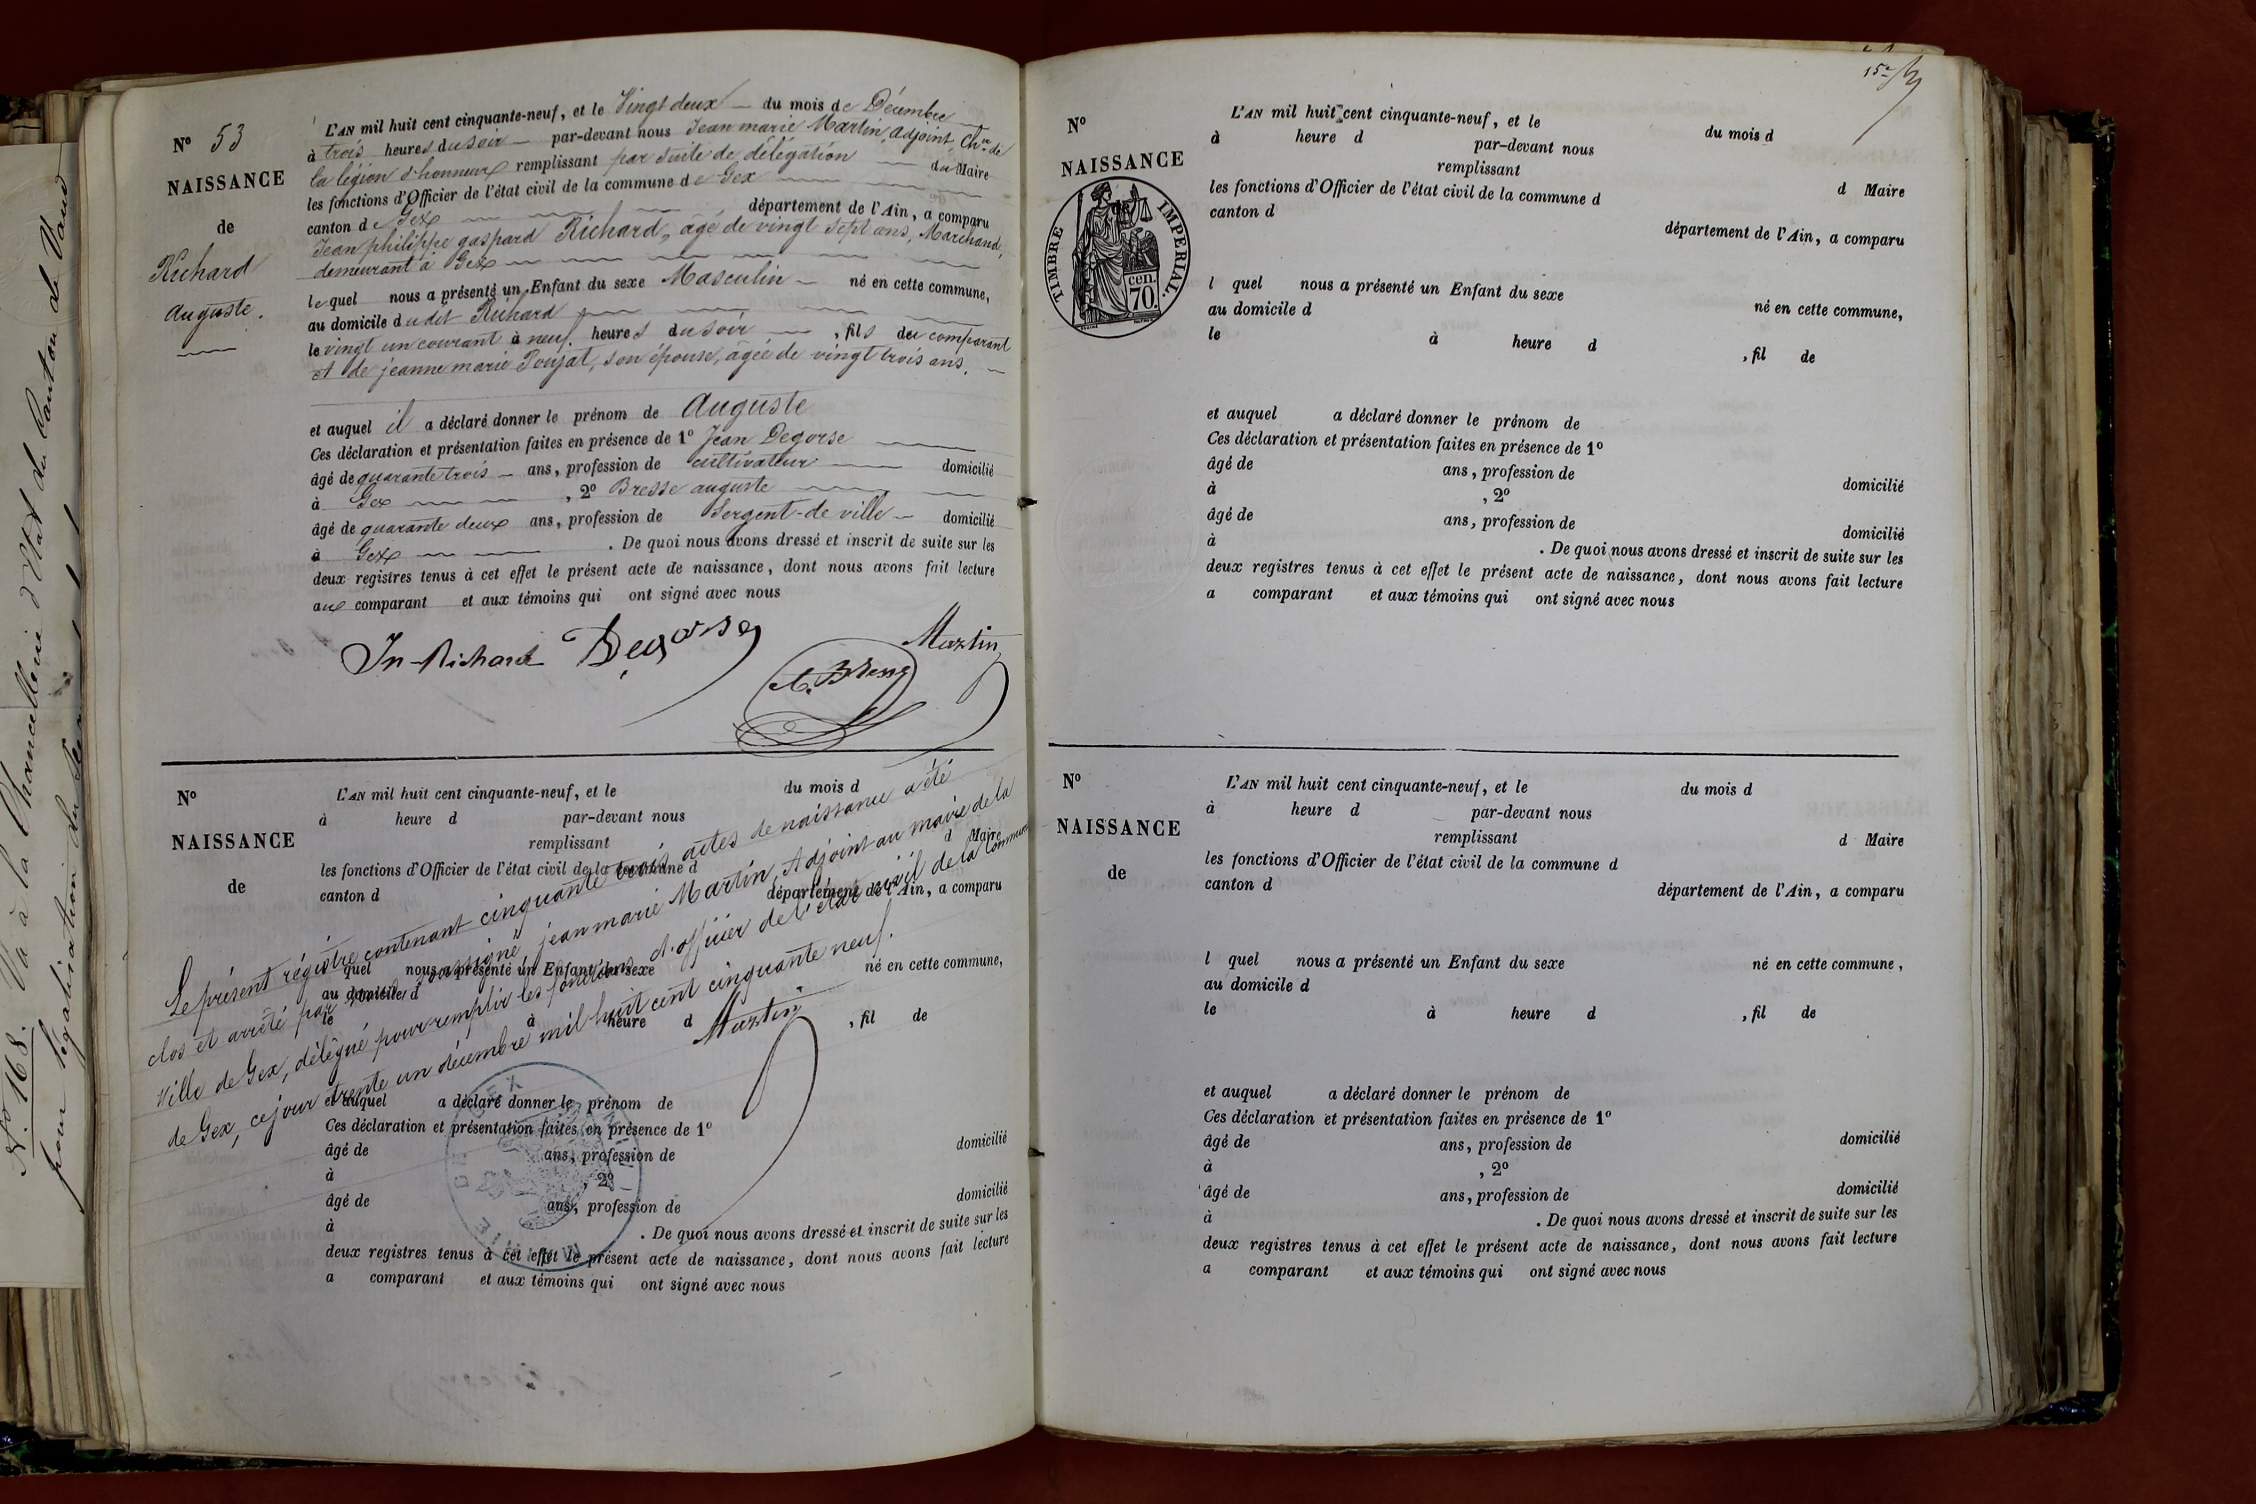 Nº 53
NAISSANCE
de
Richard
Auguste.
L'AN mil huit cent cinquante-neuf, et le Vingt deux du mois de Décembre
à trois heures du soir par-devant nous Jean marie Martin, adjoint, Chier de
la légion d'honneur remplissant par suite de délégation du Maire
les fonctions d'Officier de l'état civil de la commune de Gex
canton de Gex département de l'Ain, a comparu
Jean philippe gaspard Richard, âgé de vingt sept ans, Marchand,
demeurant à Gex
lequel nous a présenté un Enfant du sexe Masculin né en cette commune,
au domicile dudit Richard
le vingt un courant à neuf heures du soir, fils du comparant
et de jeanne marie Poujat, son épouse, âgée de vingt trois ans.
et auquel il a déclaré donner le prénom de Auguste
Ces déclaration et présentation faites en présence de 1º Jean Degorse
âgé de quarante trois ans, profession de cultivateur domicilié
à Gex, 2º Bresse auguste
âgé de quarante deux ans, profession de Sergent-de ville domicilié
à Gex. De quoi nous avons dressé et inscrit de suite sur les
deux registres tenus à cet effet le présent acte de naissance, dont nous avons fait lecture
aux comparant et aux témoins qui ont signé avec nous
Jn Richard Degorse Martin
A. Bresse
Nº
NAISSANCE
de
L'AN mil huit cent cinquante-neuf, et le du mois d
à heure d par-devant nous
remplissant d Maire
les fonctions d'Officier de l'état civil de la commune d
canton d département de l'Ain, a comparu
l quel nous a présenté un Enfant du sexe né en cette commune,
au domicile d
le à heure d , fil de
et auquel a déclaré donner le prénom de
Ces déclaration et présentation faites en présence de 1º
âgé de ans, profession de domicilié
à , 2º
âgé de ans, profession de domicilié
à . De quoi nous avons dressé et inscrit de suite sur les
deux registres tenus à cet effet le présent acte de naissance, dont nous avons fait lecture
a comparant et aux témoins qui ont signé avec nous
Le présent régistre contenant cinquante trois actes de naissance a été
clos et arrêté par nous soussigné jean marie Martin, Adjoint au maire de la
Ville de Gex, délégué pour remplir les fonctions d'officier de l'état civil de la Commune
de Gex, ce jour trente un décembre mil huit cent cinquante neuf.
Martin
MAIRIE DE GEX
Nº 168. Vu à la Chancellerie d'Etat du Canton de Vaud
pour légalisation du
15e
Nº
NAISSANCE
de
TIMBRE IMPERIAL.
70 cen.
L'AN mil huit cent cinquante-neuf, et le du mois d
à heure d par-devant nous
remplissant d Maire
les fonctions d'Officier de l'état civil de la commune d
canton d département de l'Ain, a comparu
l quel nous a présenté un Enfant du sexe né en cette commune,
au domicile d
le à heure d , fil de
et auquel a déclaré donner le prénom de
Ces déclaration et présentation faites en présence de 1º
âgé de ans, profession de domicilié
à , 2º
âgé de ans, profession de domicilié
à . De quoi nous avons dressé et inscrit de suite sur les
deux registres tenus à cet effet le présent acte de naissance, dont nous avons fait lecture
a comparant et aux témoins qui ont signé avec nous
Nº
NAISSANCE
de
L'AN mil huit cent cinquante-neuf, et le du mois d
à heure d par-devant nous
remplissant d Maire
les fonctions d'Officier de l'état civil de la commune d
canton d département de l'Ain, a comparu
l quel nous a présenté un Enfant du sexe né en cette commune,
au domicile d
le à heure d , fil de
et auquel a déclaré donner le prénom de
Ces déclaration et présentation faites en présence de 1º
âgé de ans, profession de domicilié
à , 2º
âgé de ans, profession de domicilié
à . De quoi nous avons dressé et inscrit de suite sur les
deux registres tenus à cet effet le présent acte de naissance, dont nous avons fait lecture
a comparant et aux témoins qui ont signé avec nous